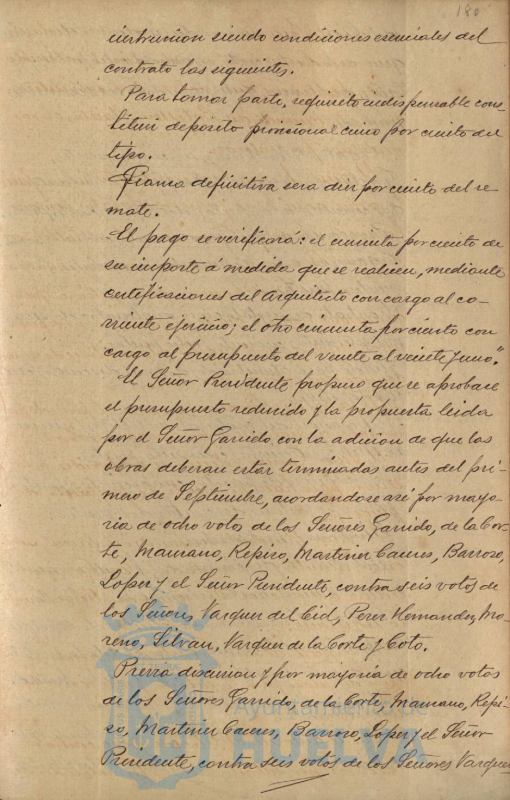 180
instruccion siendo condiciones esenciales del
contrato las siguientes.
Para tomar parte, requisito indispensable cons-
tituir deposito provisional cinco por ciento del
tipo.
Fianza definitiva sera diez por ciento del re
mate.
El pago se verificará: el cincuenta por ciento de
su importe á medida que se realicen, mediante
certificaciones del Arquitecto con cargo al co-
rriente ejercicio; el otro cincuenta por ciento con
cargo al presupuesto del veinte al veinte y uno."
El Señor Presidente propuso que se aprobase
el presupuesto reducido y la propuesta leida
por el Señor Garrido con la adicion de que las
obras deberan estar terminadas antes del pri-
mero de Septiembre, acordandose asi por mayo-
ria de ocho votos de los Señores Garrido, de la Cor-
te, Mascano, Repiso, Martinez Caceres, Barroso,
Lopez y el Señor Presidente, contra seis votos de
los Señores Vazquez del Cid, Perez Hernandez, Mo-
reno, Silvan, Vazquez de la Corte y Coto.
Previa discusion y por mayoria de ocho votos
de los Señores Garrido, de la Corte, Mascano, Repi-
so, Martinez Caceres, Barroso, Lopez y el Señor
Presidente, contra seis votos de los Señores Vazquez
Ayuntamiento de
HUELVA